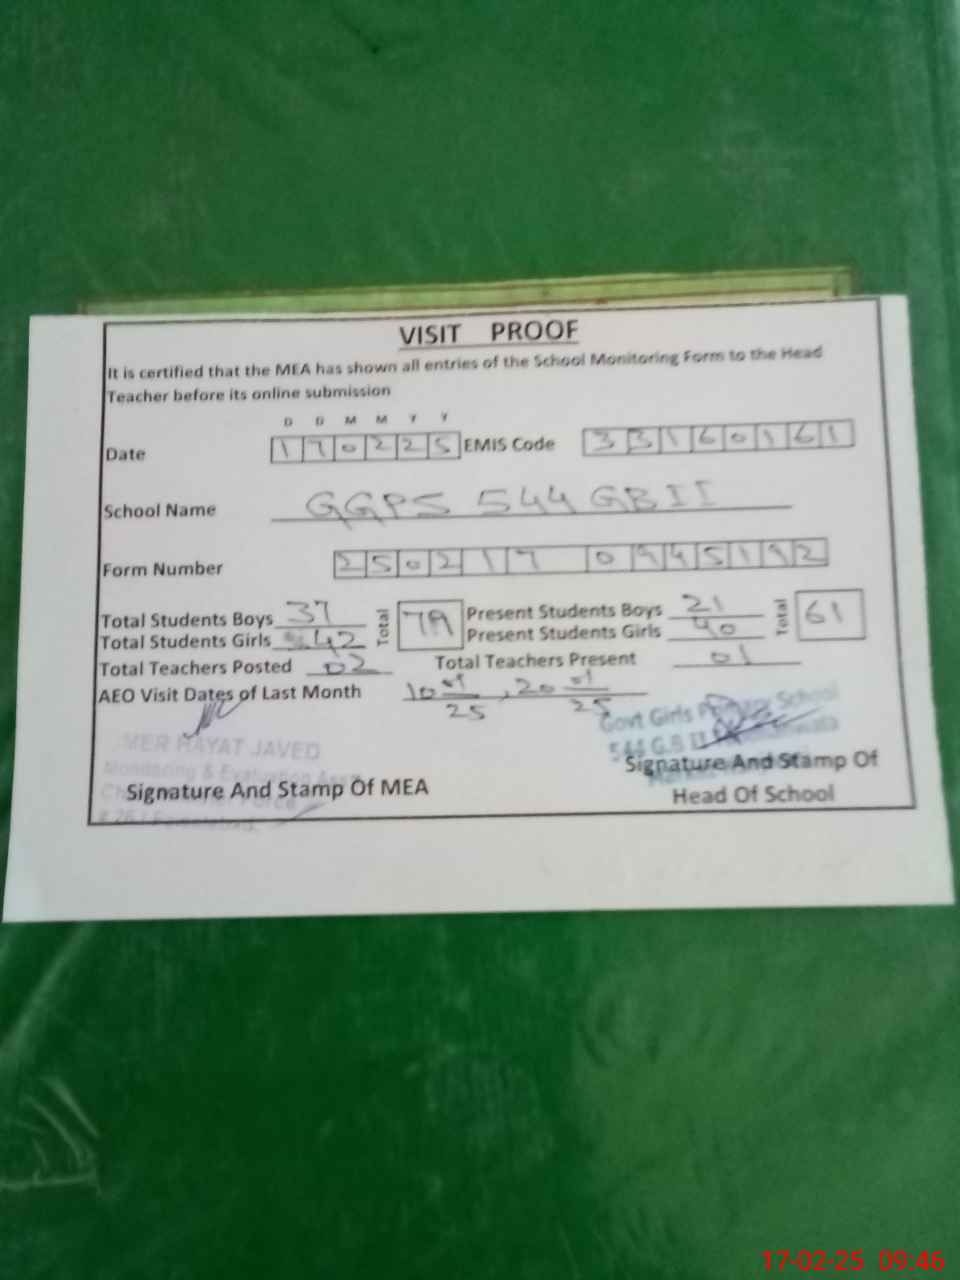 VISIT PROOF
It is certified that the MEA has shown all entries of the School Monitoring Form to the Head
Teacher before its online submission
D D M M Y Y
Date 170225 EMIS Code 33160161
School Name GGPS 544 GB II
Form Number 250217 0945192
Total Students Boys 37 Total 79 Present Students Boys 21 Total 61
Total Students Girls 42 Present Students Girls 40
Total Teachers Posted 02 Total Teachers Present 01
AEO Visit Dates of Last Month 10 01/25, 20 01/25
MER HAYAT JAVED
Monitoring & Evaluation
Signature And Stamp Of MEA
Govt Girls Primary School
544 G.B II
Signature And Stamp Of
Head Of School
17-02-25 09:46